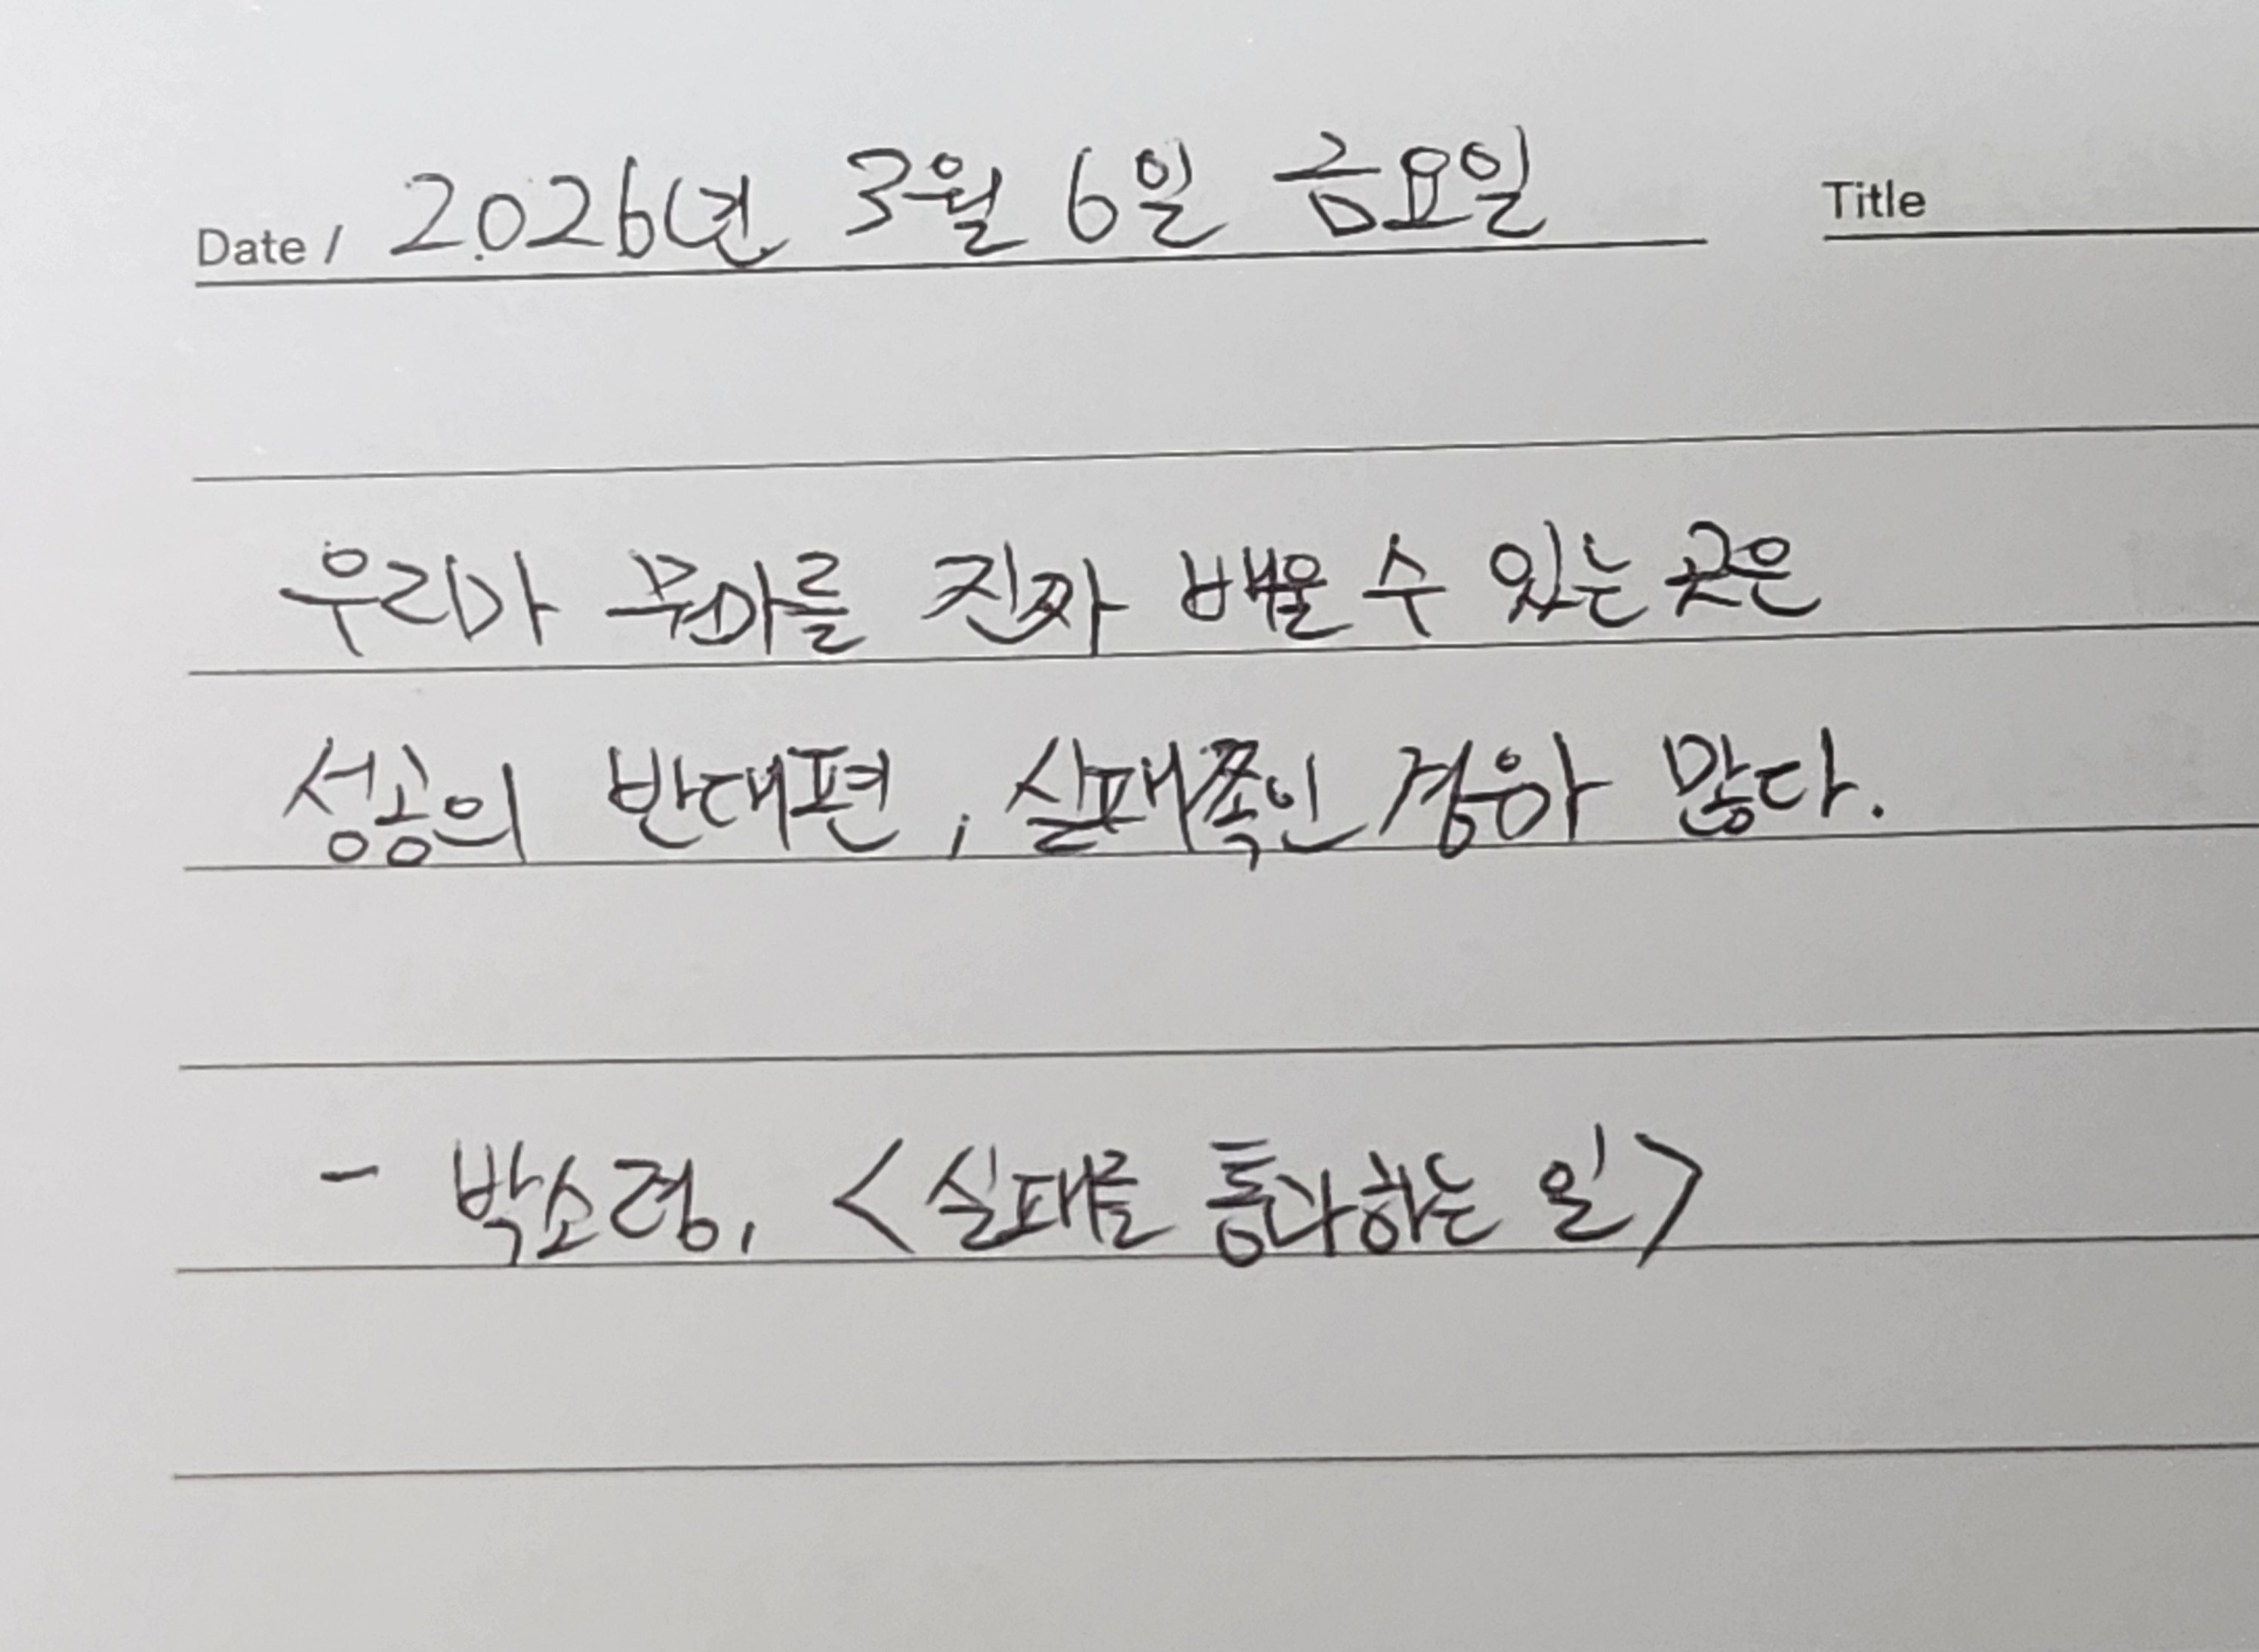 Date / 2026년 3월 6일 금요일 Title
우리가 뭔가를 진짜 배울 수 있는 곳은
성공의 반대편, 실패쪽인 경우가 많다.
- 박소령, <실패를 통과하는 일>